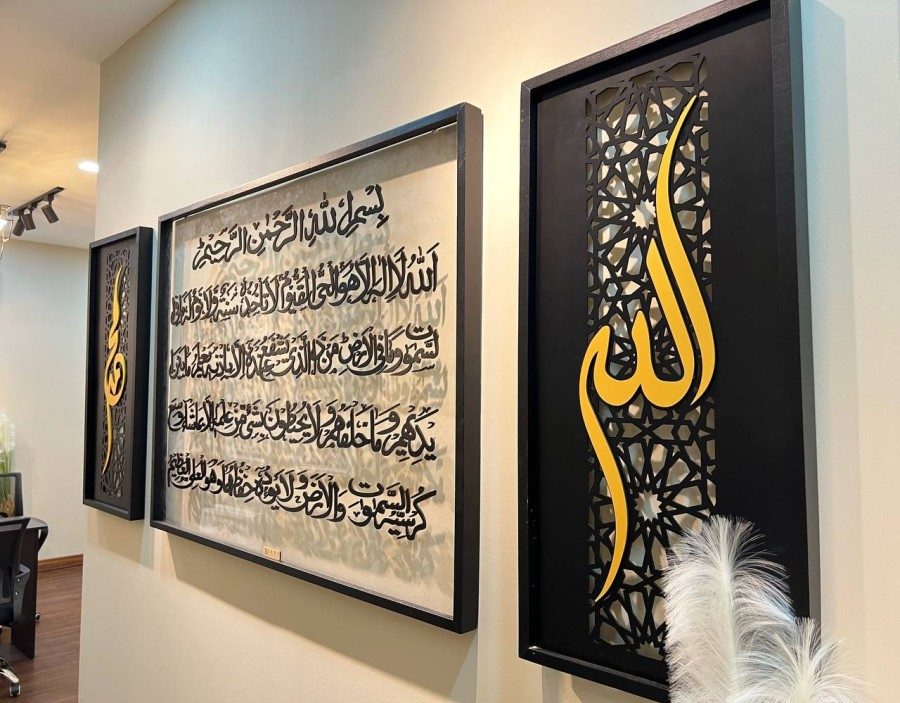 الله
بِسْمِ اللّٰهِ الرَّحْمٰنِ الرَّحِيْمِ
اَللّٰهُ لَا اِلٰهَ اِلَّا هُوَ الْحَيُّ الْقَيُّوْمُ لَا تَاْخُذُهٗ سِنَةٌ وَّلَا نَوْمٌ لَهٗ مَا فِی
السَّمٰوٰتِ وَمَا فِی الْاَرْضِ مَنْ ذَا الَّذِیْ یَشْفَعُ عِنْدَهٗ اِلَّا بِاِذْنِهٖ یَعْلَمُ مَا بَیْنَ اَ
یْدِیْهِمْ وَمَا خَلْفَهُمْ وَلَا یُحِیْطُوْنَ بِشَیْءٍ مِّنْ عِلْمِهٖ اِلَّا بِمَا شَآءَ وَسِعَ
كُرْسِیُّهُ السَّمٰوٰتِ وَالْاَرْضَ وَلَا یَـُٔوْدُهٗ حِفْظُهُمَا وَهُوَ الْعَلِیُّ الْعَظِیْمُ
محمد